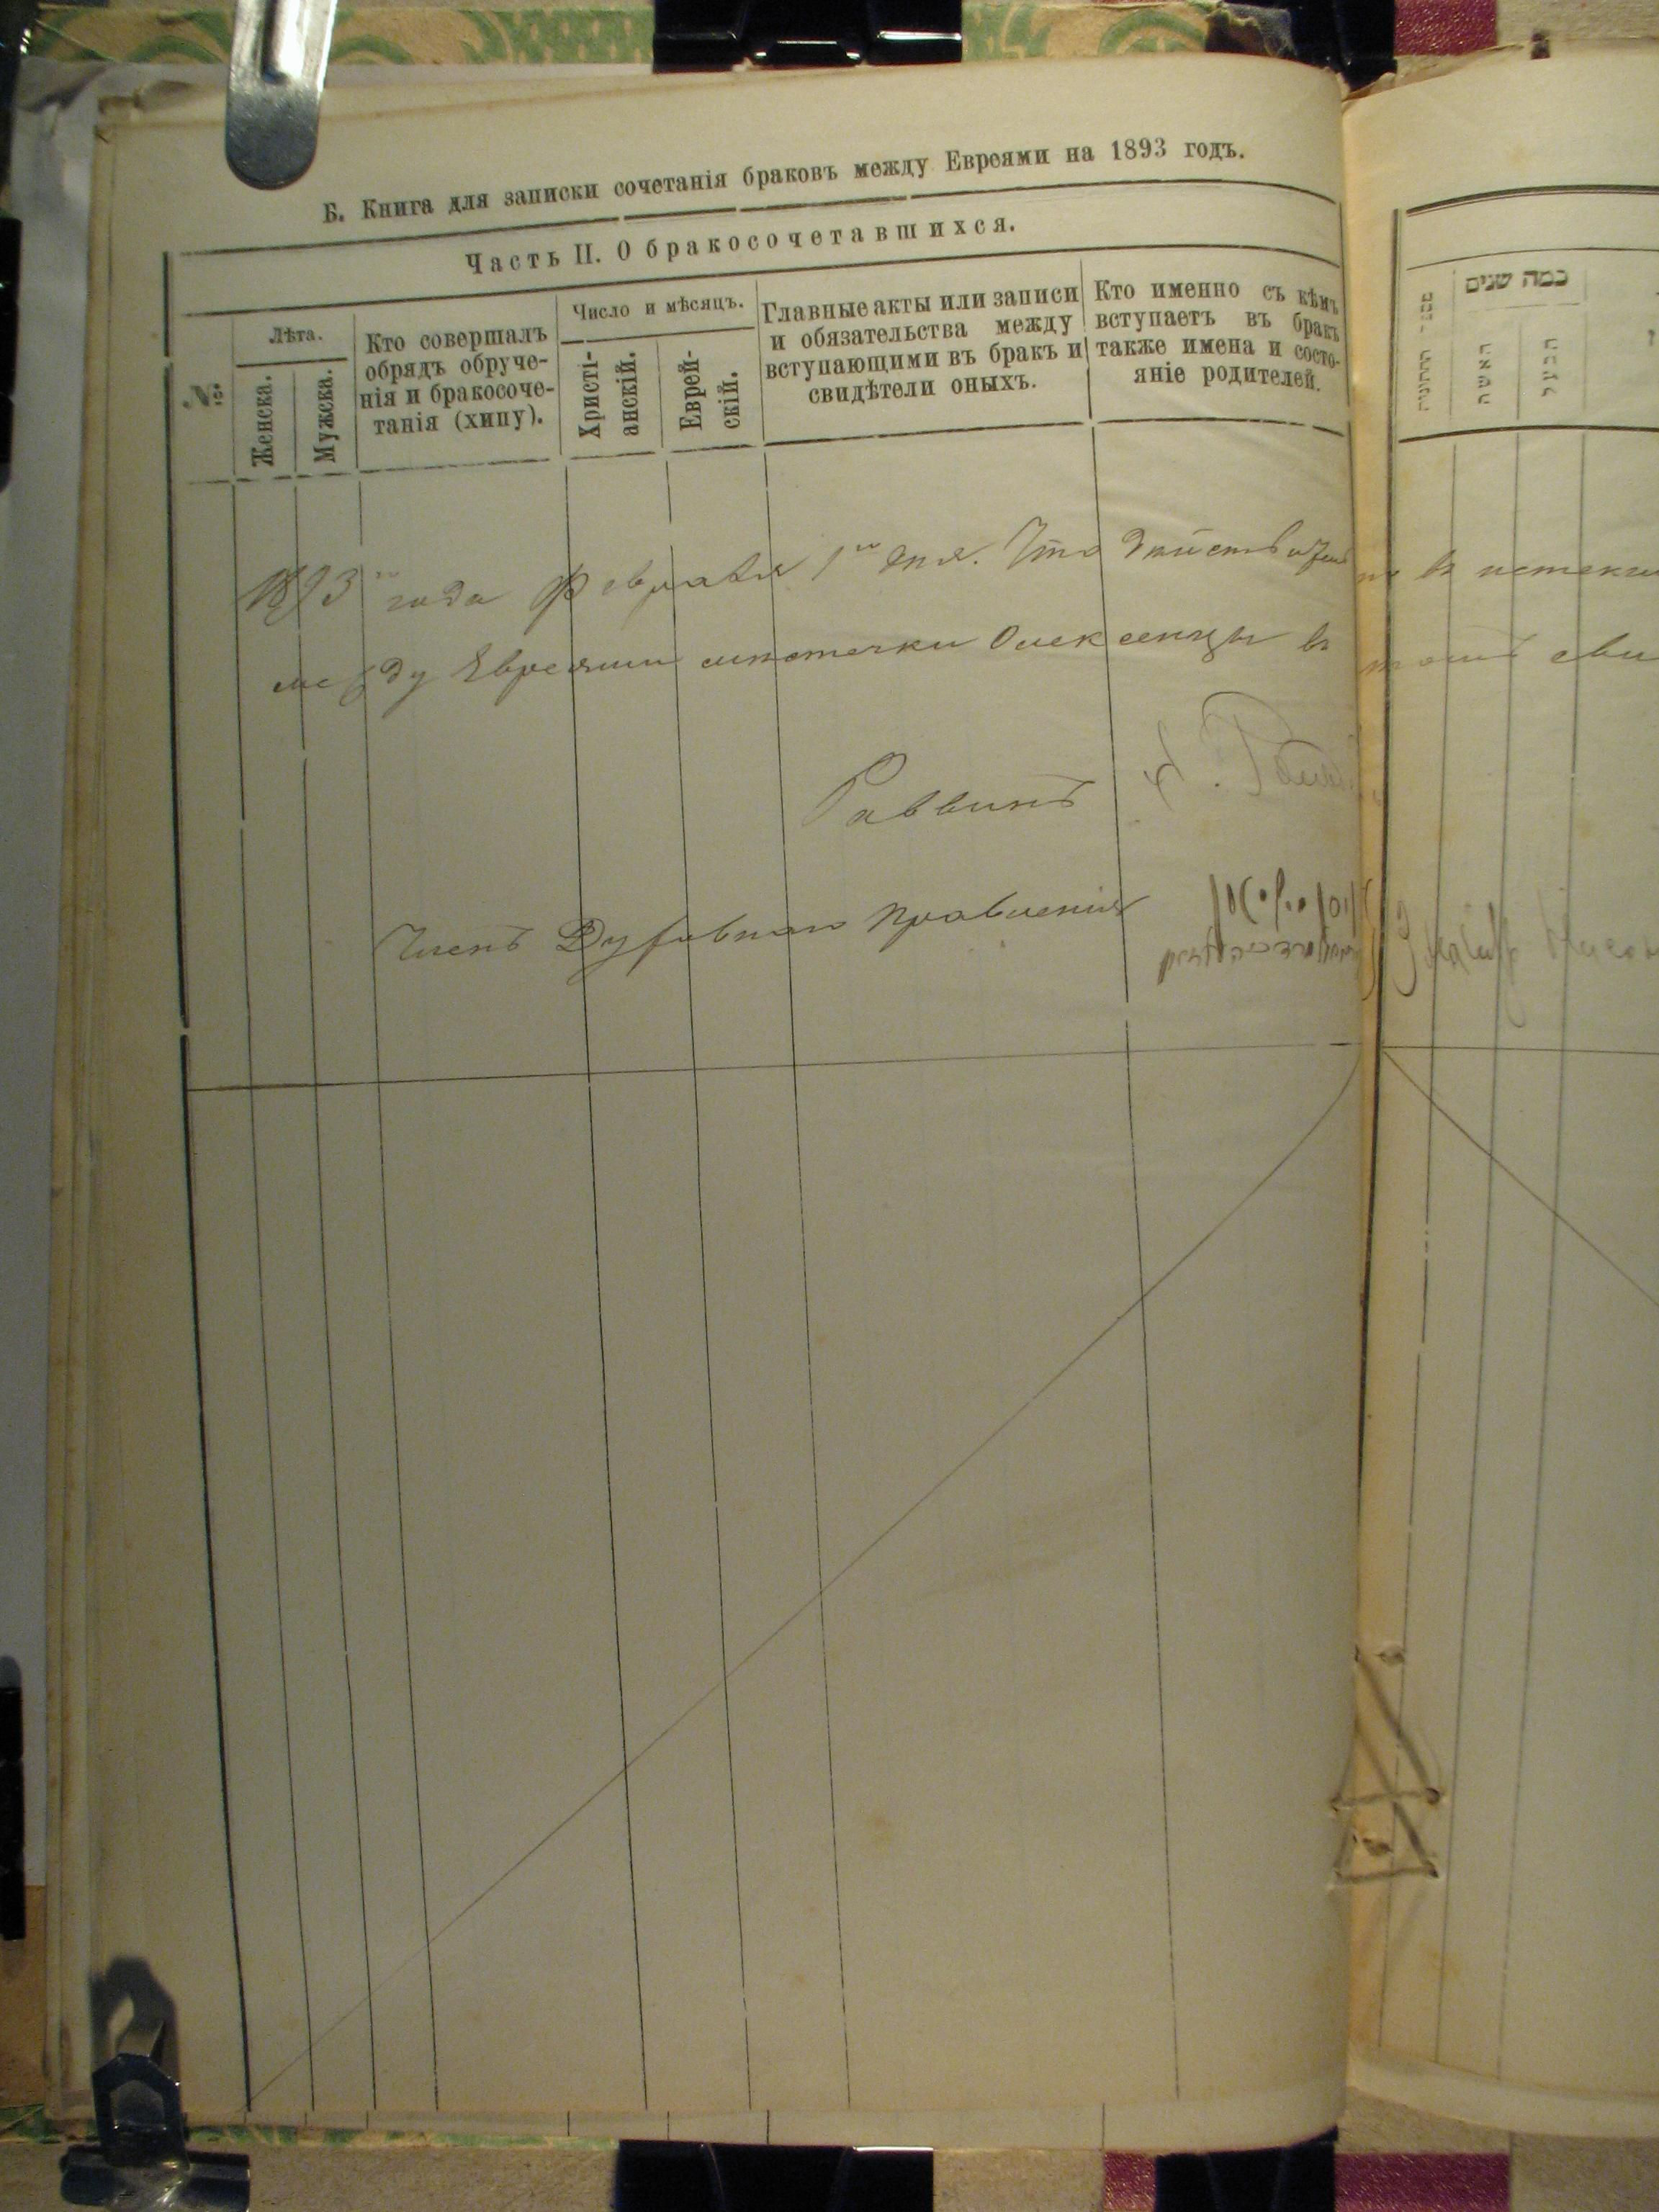 Б. Книга для записки сочетанія браковъ между Евреями на 1893 годъ.
Часть II. О бракосочетавшихся.
№
Лѣта.
Женска.
Мужска.
Кто совершалъ
обрядъ обруче-
нія и бракосоче-
танія (хипу).
Число и мѣсяцъ.
Христі-
анскій.
Еврей-
скій.
Главные акты или записи
и обязательства между
вступающими въ бракъ и
свидѣтели оныхъ.
Кто именно съ кѣмъ
вступаетъ въ бракъ
также имена и состо-
яніе родителей.
כמה שנים
האשה
הבעל
1893 года Февраля 1го дня. Что дѣйствительно въ истекш
между Евреями мѣстечка въ томъ сви
Раввинъ
Членъ Духовнаго Правленія